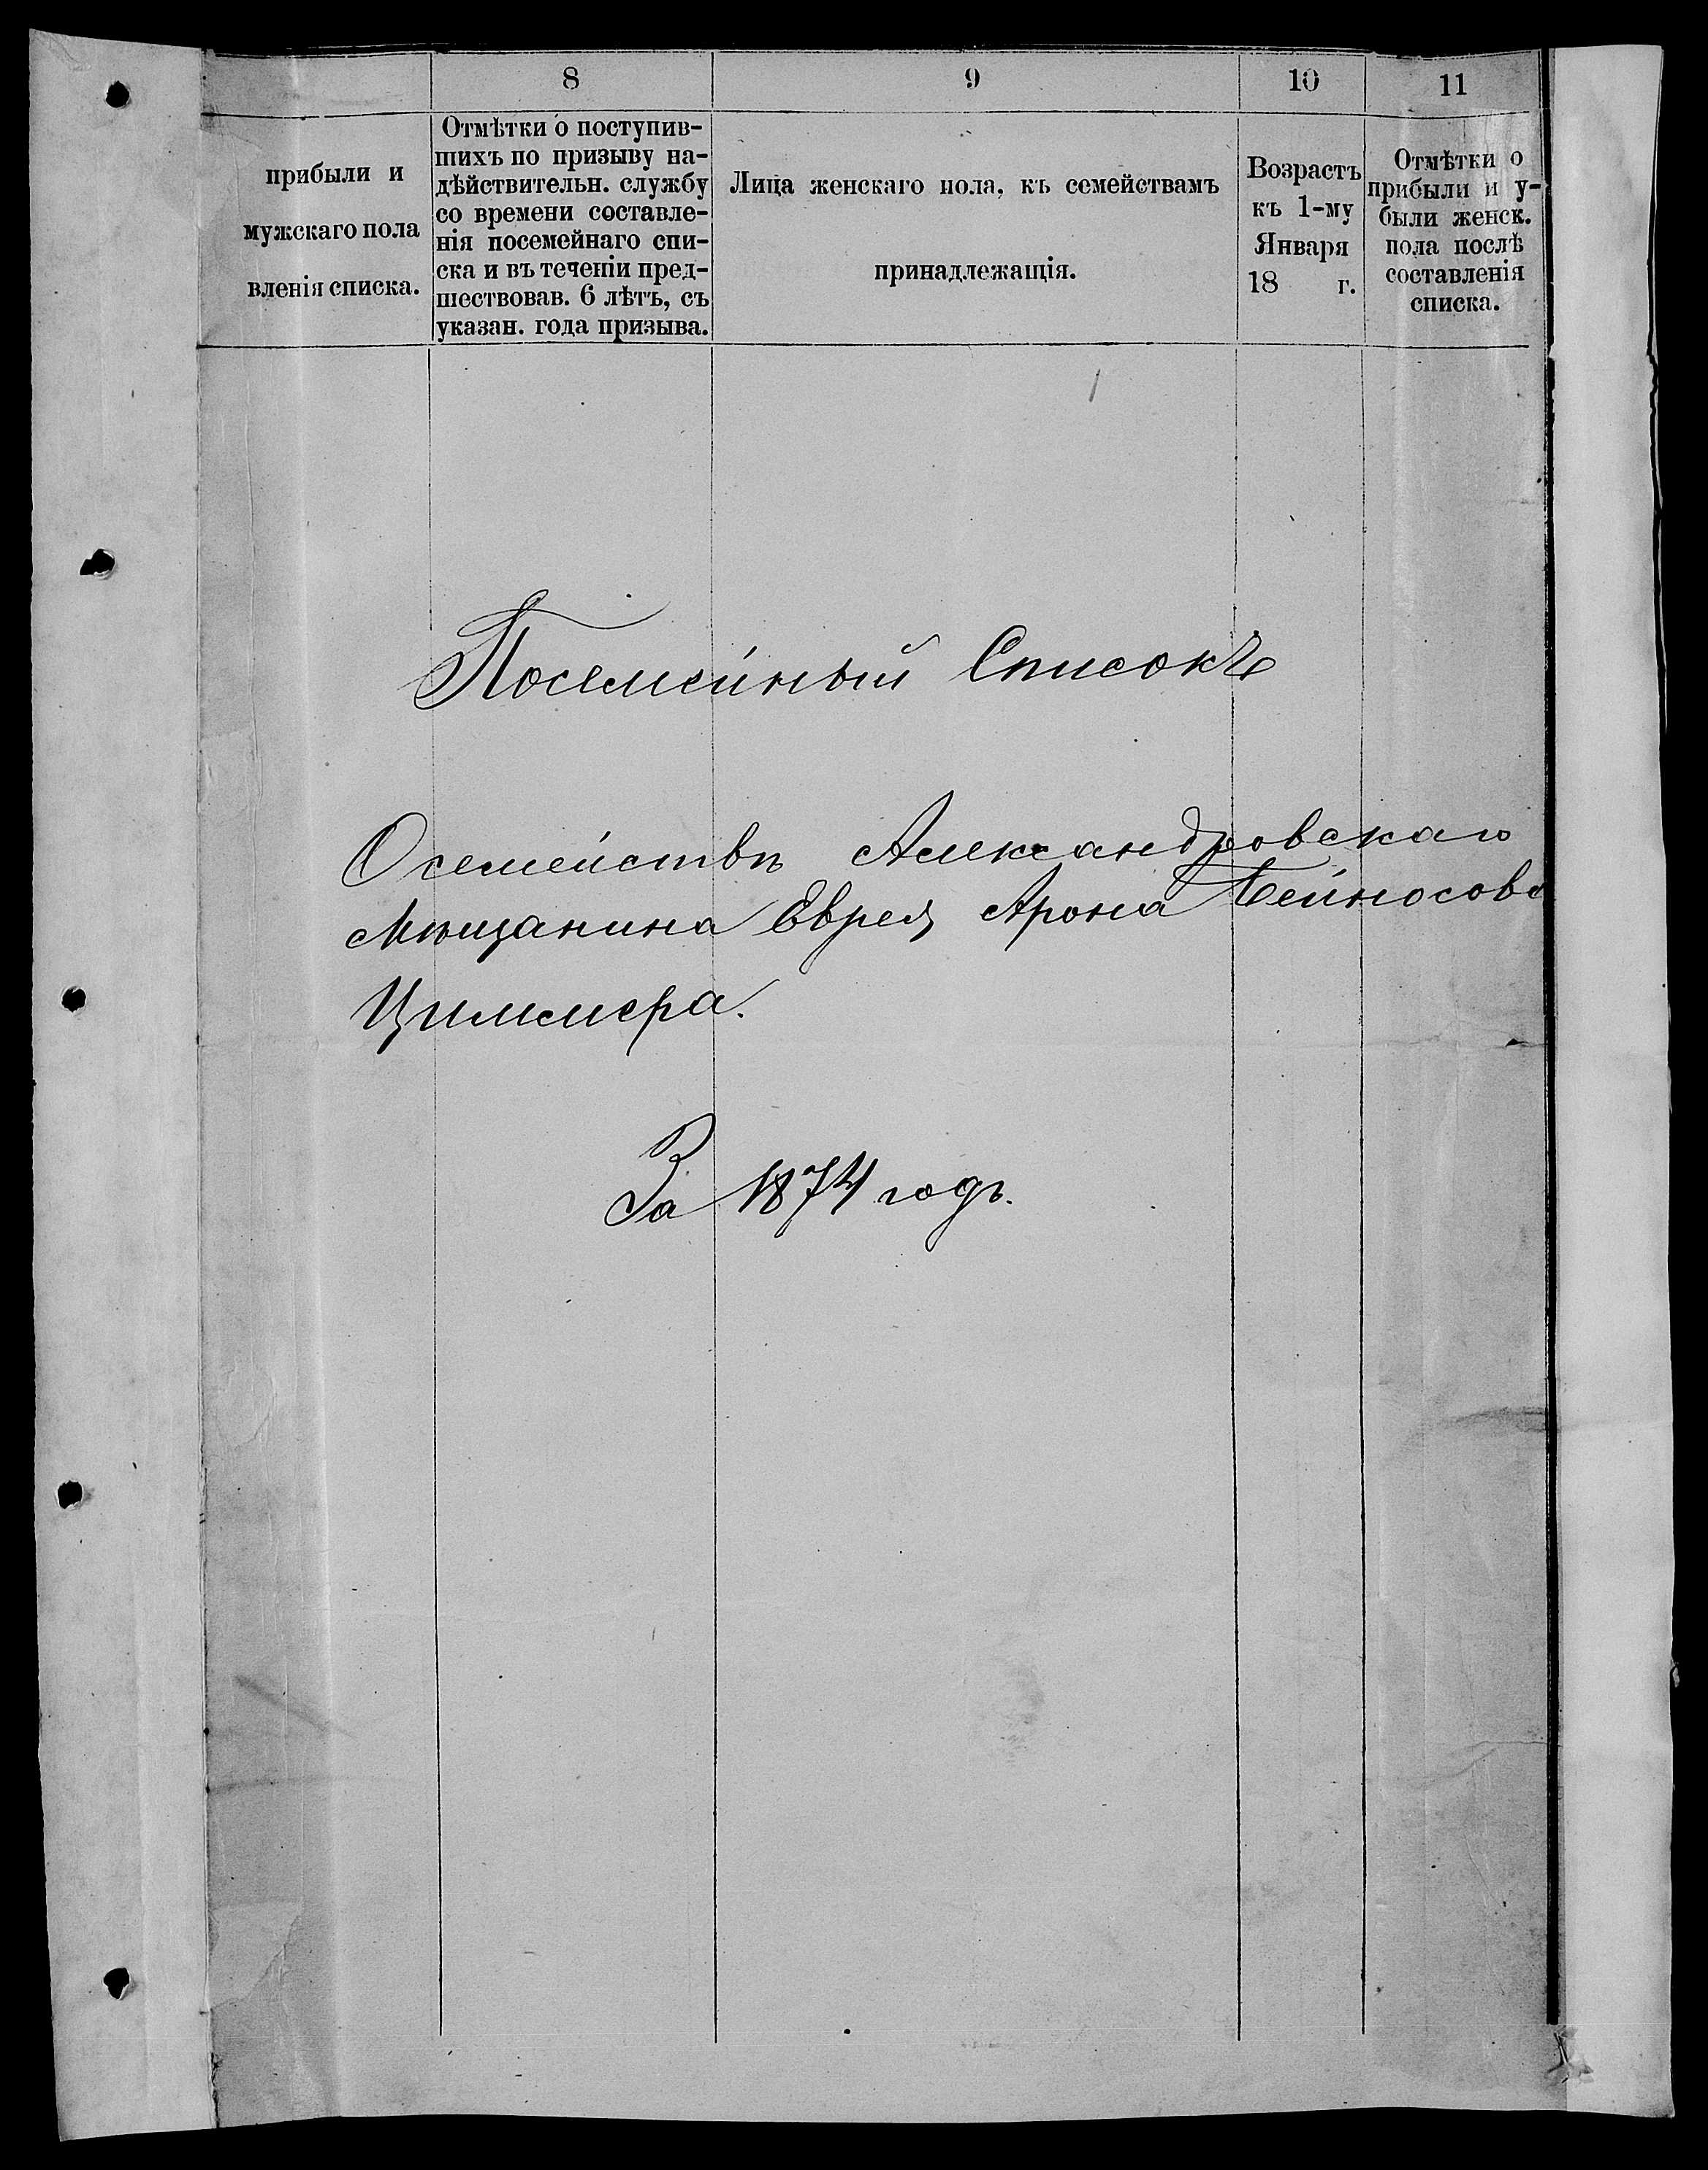 8 9 10 11
прибыли и
мужскаго пола
вленія списка.
Отмѣтки о поступив-
шихъ по призыву на-
дѣйствительн. службу
со времени составле-
нія посемейнаго спи-
ска и въ теченіи пред-
шествовав. 6 лѣтъ, съ
указан. года призыва.
Лица женскаго пола, къ семействамъ
принадлежащія.
Возрастъ
къ 1-му
Января
18 г.
Отмѣтки о
прибыли и у-
были женск.
пола послѣ
составленія
списка.
Посемейный Списокъ
О семействѣ Александровскаго
Мѣщанина Еврея Арона Бейносова
Циммера.
За 1874 годъ.